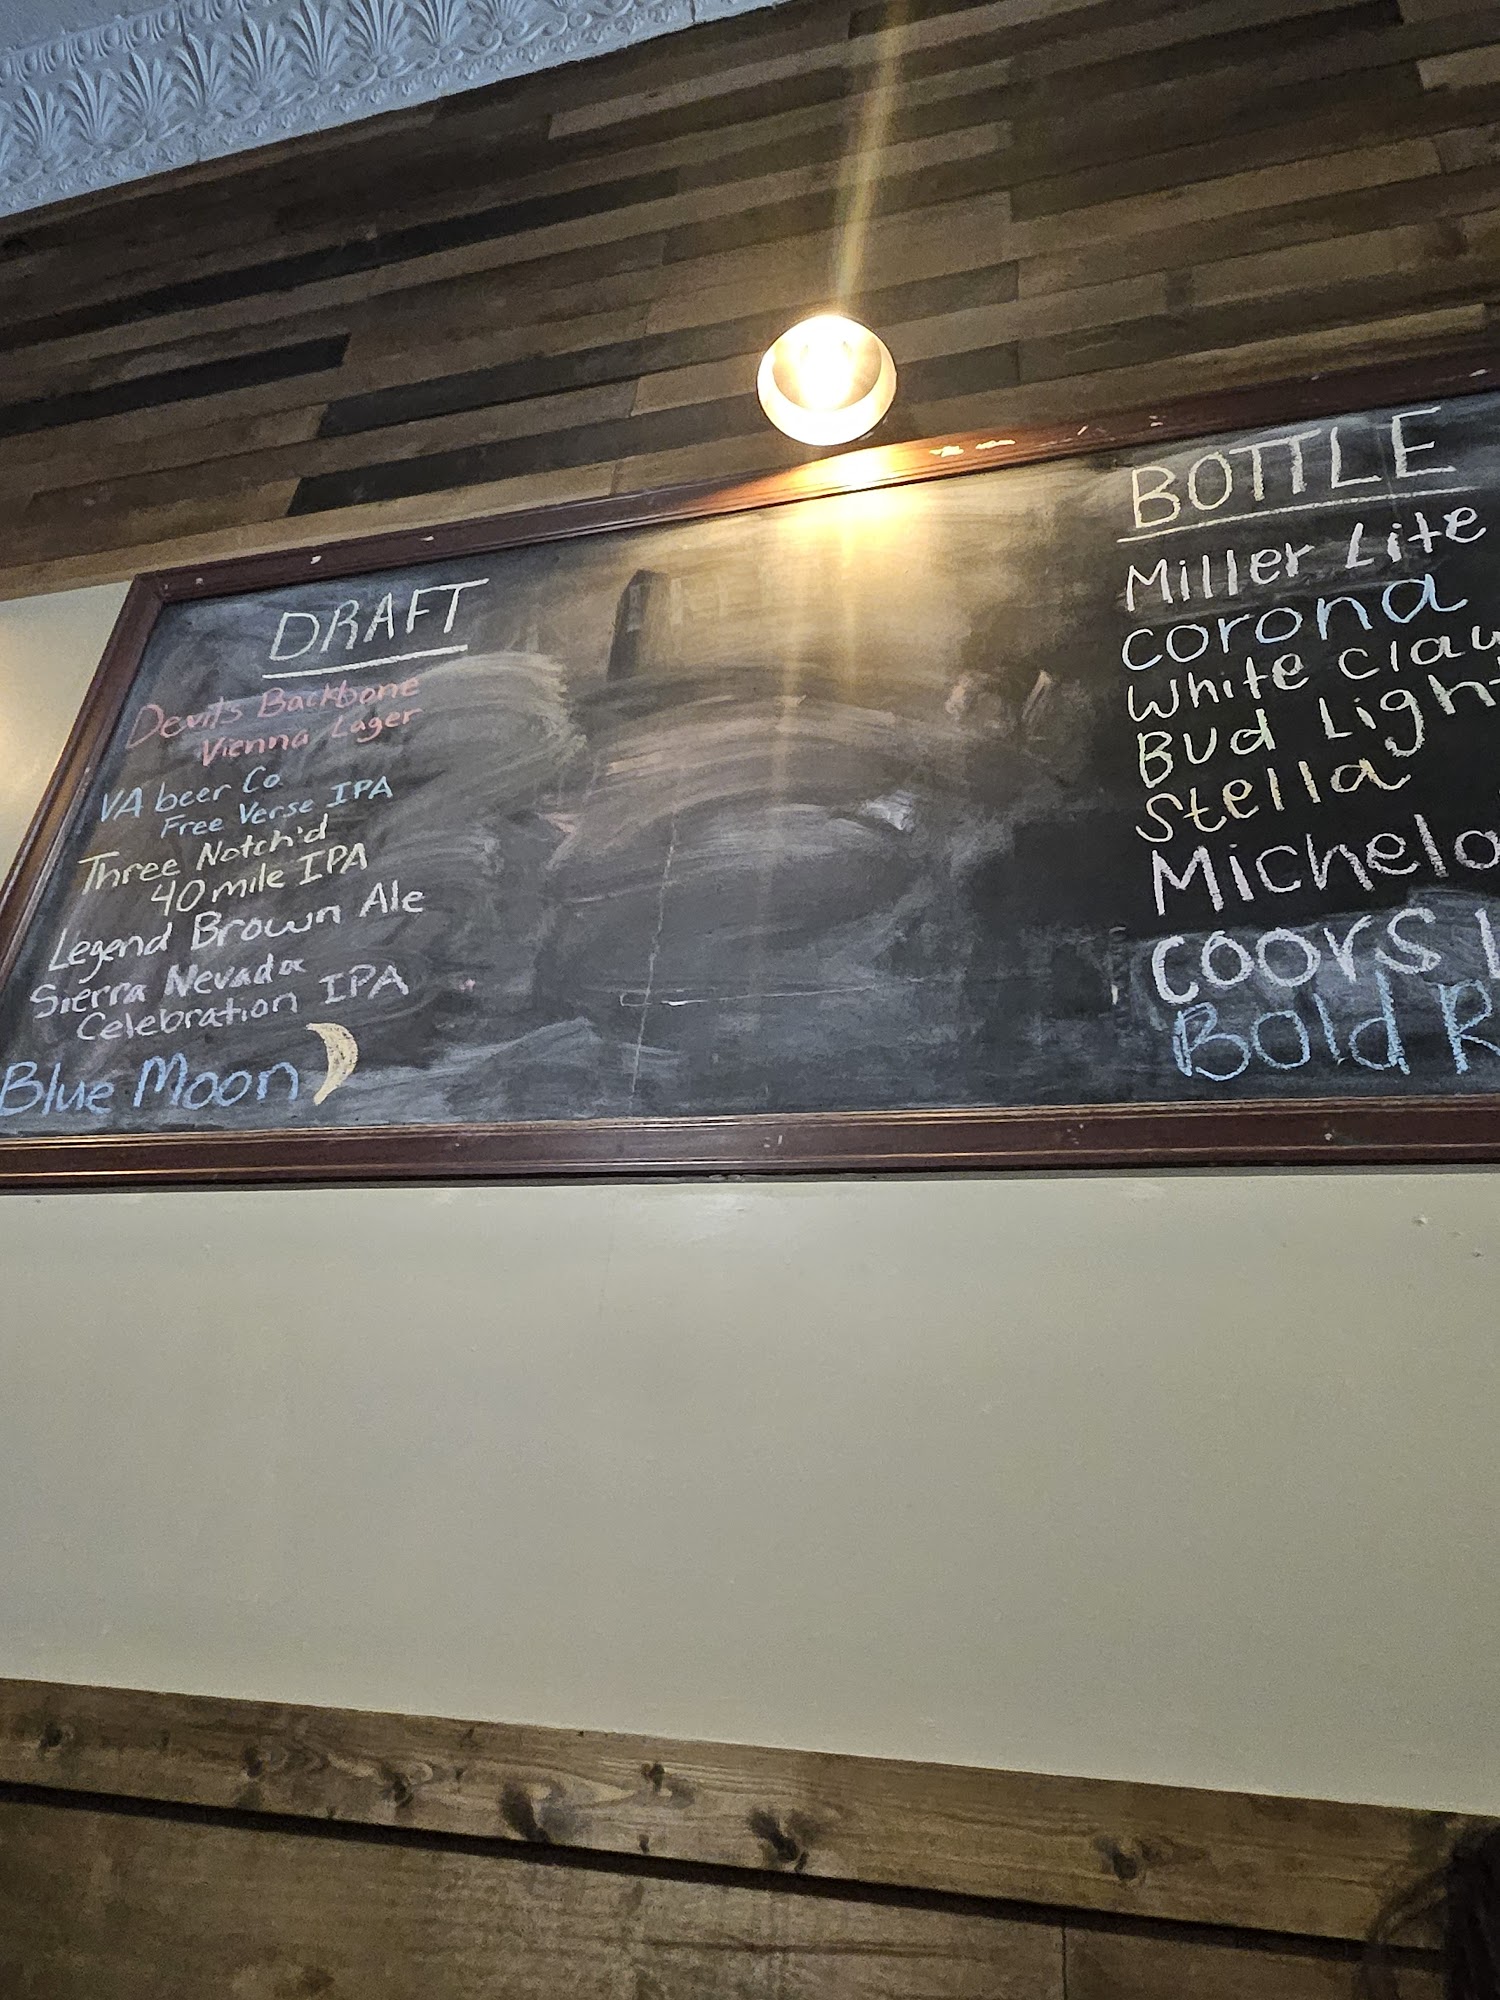 DRAFT
Devils Backbone
Vienna Lager
VA beer Co.
Free Verse IPA
Three Notch'd
40 mile IPA
Legend Brown Ale
Sierra Nevada
Celebration IPA
Blue Moon
BOTTLE
Miller Lite
Corona
White Claw
Bud Light
Stella
Michelo
Coors L
Bold R